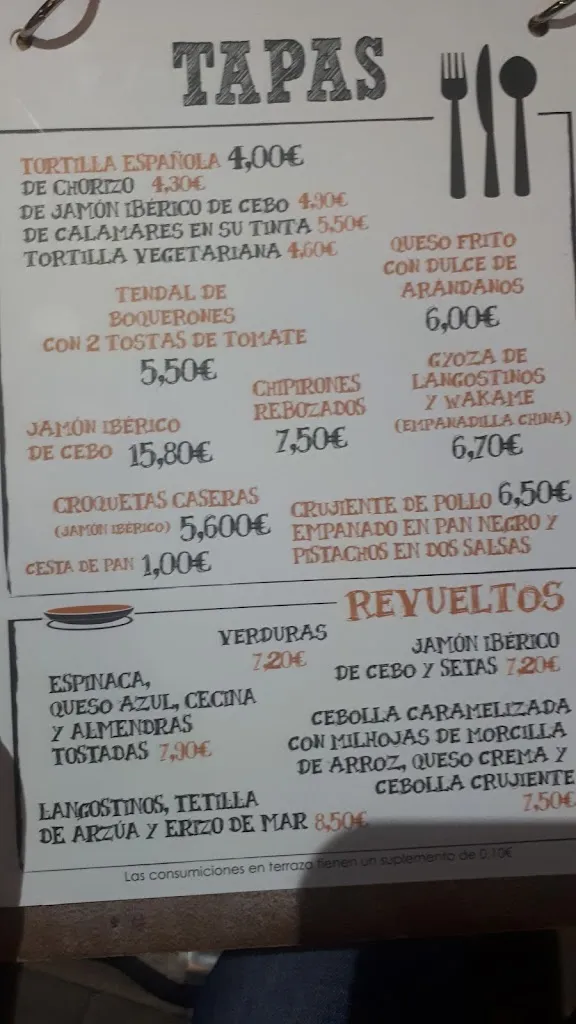 TAPAS
TORTILLA ESPAÑOLA 4,00€
DE CHORIZO 4,30€
DE JAMÓN IBÉRICO DE CEBO 4,90€
DE CALAMARES EN SU TINTA 5,50€
TORTILLA VEGETARIANA 4,60€
QUESO FRITO
CON DULCE DE
ARÁNDANOS
6,00€
TENDAL DE
BOQUERONES
CON 2 TOSTAS DE TOMATE
5,50€
GYOZA DE
LANGOSTINOS
Y WAKAME
(EMPANADILLA CHINA)
6,70€
CHIPIRONES
REBOZADOS
7,50€
JAMÓN IBÉRICO
DE CEBO 15,80€
CROQUETAS CASERAS
(JAMÓN IBÉRICO) 5,600€
CESTA DE PAN 1,00€
CRUJIENTE DE POLLO 6,50€
EMPANADO EN PAN NEGRO Y
PISTACHOS EN DOS SALSAS
REVUELTOS
VERDURAS
7,20€
JAMÓN IBÉRICO
DE CEBO Y SETAS 7,20€
ESPINACA,
QUESO AZUL, CECINA
Y ALMENDRAS
TOSTADAS 7,90€
CEBOLLA CARAMELIZADA
CON MILHOJAS DE MORCILLA
DE ARROZ, QUESO CREMA Y
CEBOLLA CRUJIENTE
7,50€
LANGOSTINOS, TETILLA
DE ARZÚA Y ERIZO DE MAR 8,50€
Las consumiciones en terraza tienen un suplemento de 0,10€